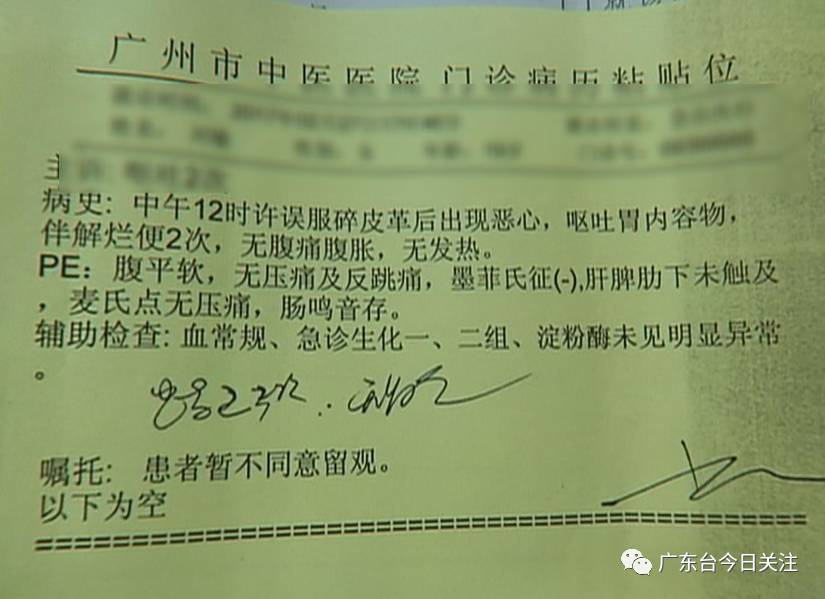 广州市中医医院 门诊病历粘贴位
病史: 中午12时许误服碎皮革后出现恶心，呕吐胃内容物，
伴解烂便2次，无腹痛腹胀，无发热。
PE：腹平软，无压痛及反跳痛，墨菲氏征(-),肝脾肋下未触及
，麦氏点无压痛，肠鸣音存。
辅助检查: 血常规、急诊生化一、二组、淀粉酶未见明显异常
。
嘱托: 患者暂不同意留观。
以下为空
广东台今日关注